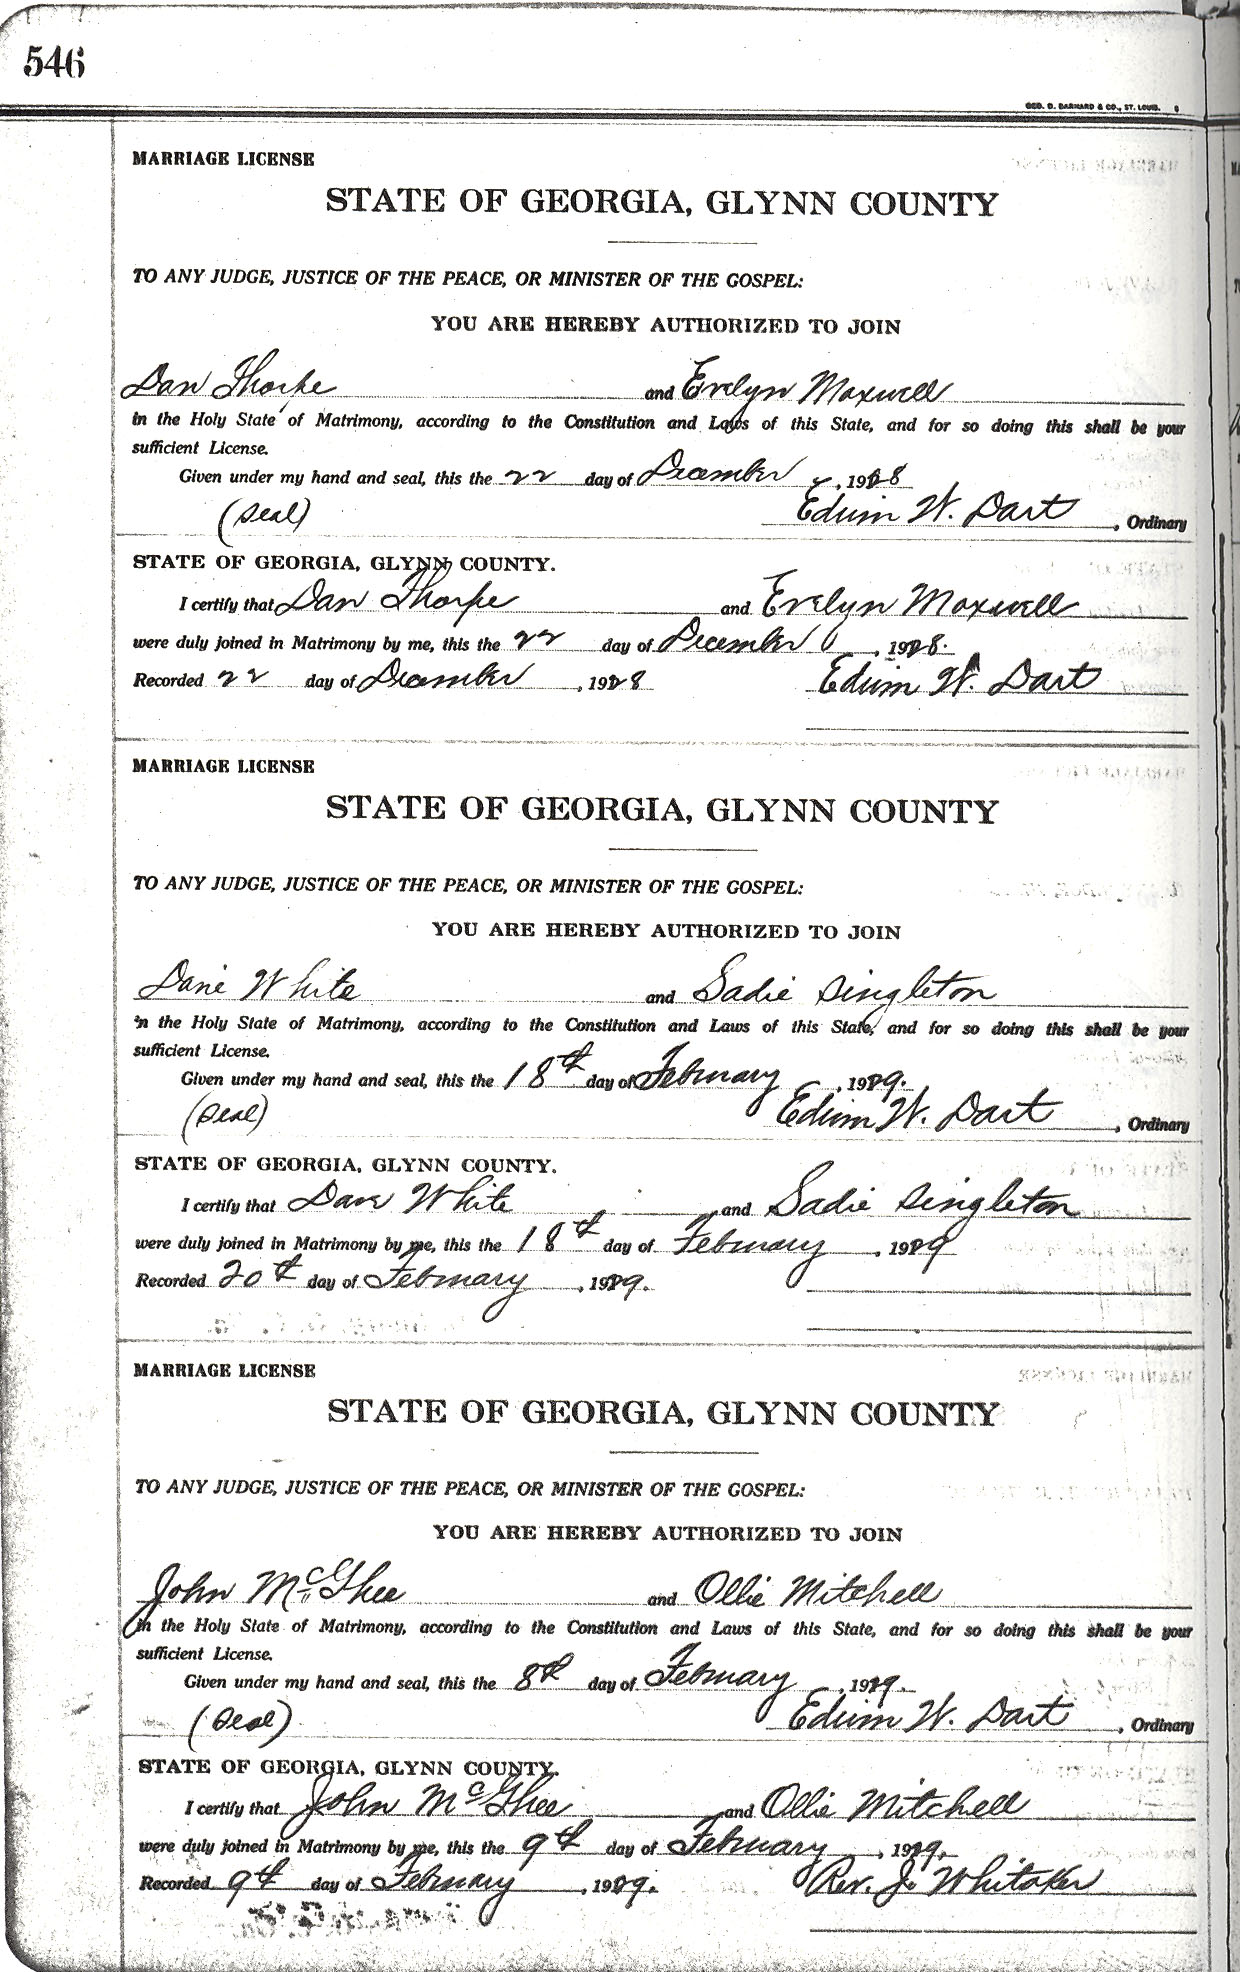 546
GEO. D. BARNARD & CO., ST. LOUIS.
MARRIAGE LICENSE
STATE OF GEORGIA, GLYNN COUNTY
TO ANY JUDGE, JUSTICE OF THE PEACE, OR MINISTER OF THE GOSPEL:
YOU ARE HEREBY AUTHORIZED TO JOIN
Dan Thorpe and Evelyn Maxwell
in the Holy State of Matrimony, according to the Constitution and Laws of this State, and for so doing this shall be your
sufficient License.
Given under my hand and seal, this the 22 day of December, 1928
(Seal) Edwin W. Dart, Ordinary
STATE OF GEORGIA, GLYNN COUNTY.
I certify that Dan Thorpe and Evelyn Maxwell
were duly joined in Matrimony by me, this the 22 day of December, 1928.
Recorded 22 day of December, 1928 Edwin W. Dart
MARRIAGE LICENSE
STATE OF GEORGIA, GLYNN COUNTY
TO ANY JUDGE, JUSTICE OF THE PEACE, OR MINISTER OF THE GOSPEL:
YOU ARE HEREBY AUTHORIZED TO JOIN
Dave White and Sadie Singleton
in the Holy State of Matrimony, according to the Constitution and Laws of this State, and for so doing this shall be your
sufficient License.
Given under my hand and seal, this the 18th day of February, 1929.
(Seal) Edwin W. Dart, Ordinary
STATE OF GEORGIA, GLYNN COUNTY.
I certify that Dave White and Sadie Singleton
were duly joined in Matrimony by me, this the 18th day of February, 1929
Recorded 20th day of February, 1929.
MARRIAGE LICENSE
STATE OF GEORGIA, GLYNN COUNTY
TO ANY JUDGE, JUSTICE OF THE PEACE, OR MINISTER OF THE GOSPEL:
YOU ARE HEREBY AUTHORIZED TO JOIN
John McGhee and Ollie Mitchell
in the Holy State of Matrimony, according to the Constitution and Laws of this State, and for so doing this shall be your
sufficient License.
Given under my hand and seal, this the 8th day of February, 1929.
(Seal) Edwin W. Dart, Ordinary
STATE OF GEORGIA, GLYNN COUNTY.
I certify that John McGhee and Ollie Mitchell
were duly joined in Matrimony by me, this the 9th day of February, 1929.
Recorded 9th day of February, 1929. Rev. J. Whitaker